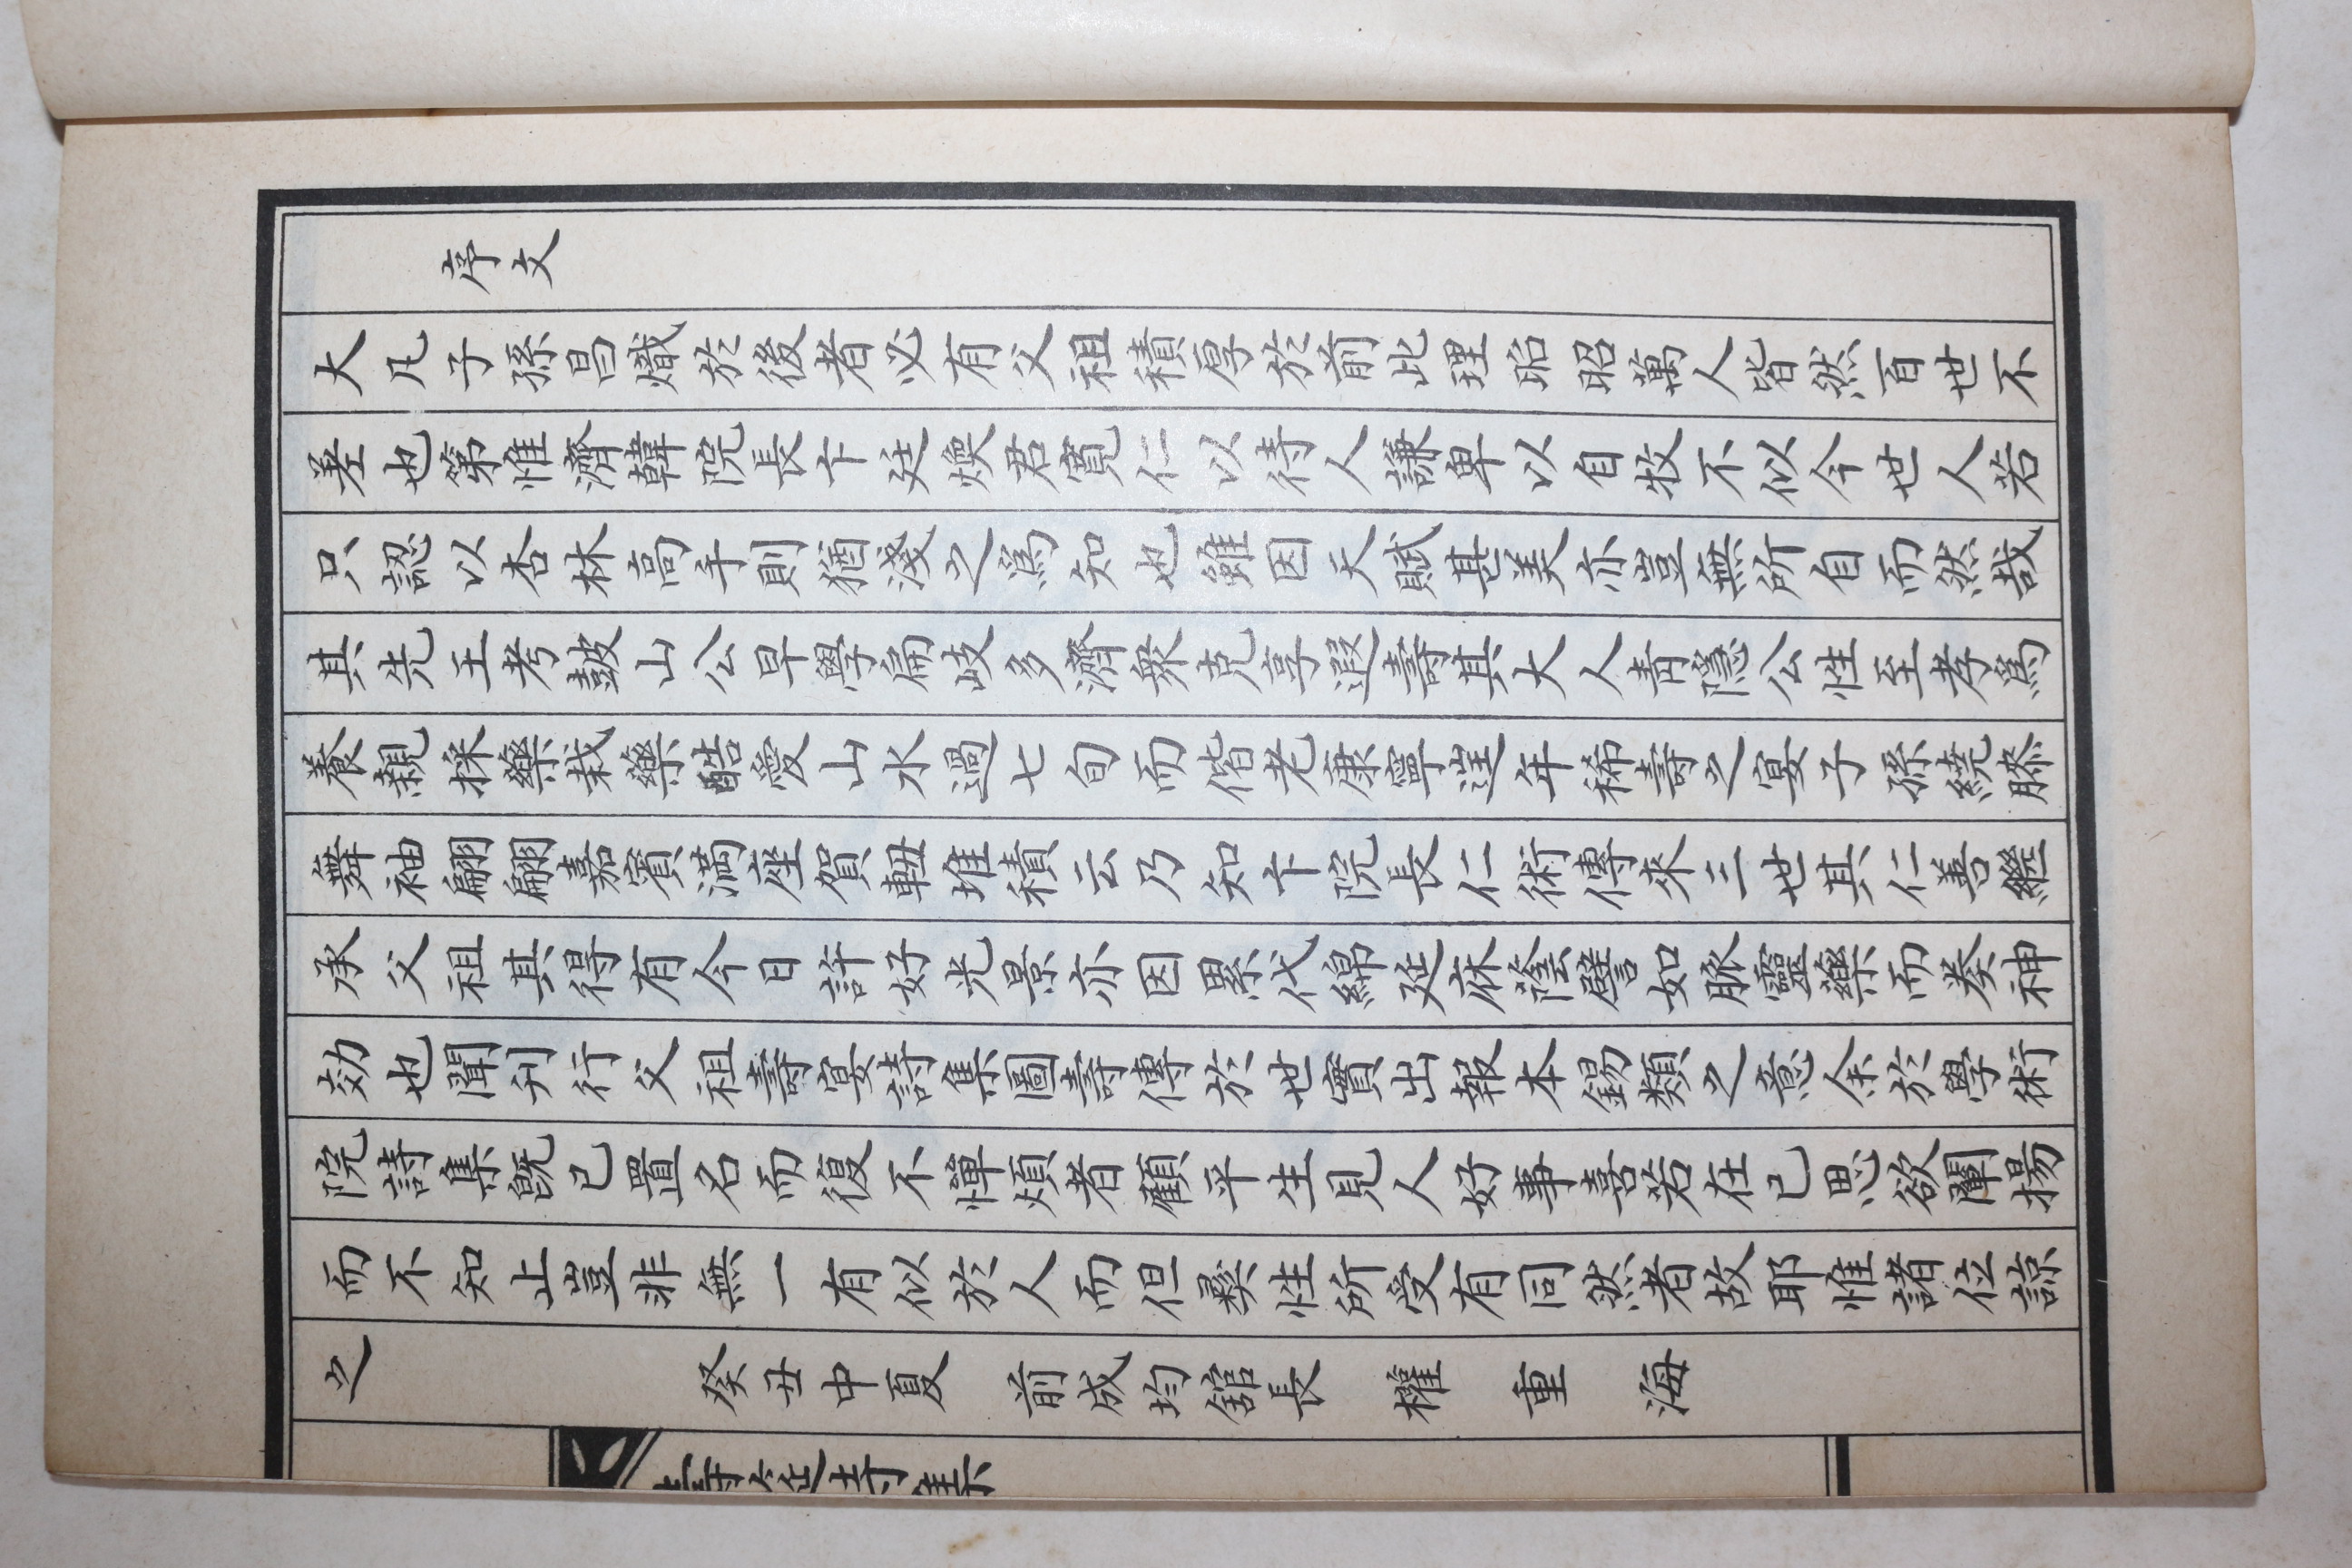 序文
大凡子孫昌熾於後者必有父祖積厚於前此理昭昭萬人皆然百世不
差也第惟濟韓院長卞廷煥君寬仁以待人謙卑以自牧不似今世人若
只認以杏林高手則猶淺之爲知也雖因天賦甚美亦豈無所自而然哉
其先王考鼓山公早學扁岐多濟衆克享遐壽其大人靑隱公性至孝爲
養親採藥栽藥酷愛山水過七旬而偕老康寧迬年稀壽之宴子孫繞膝
舞袖翩翩嘉賓滿座賀軸堆積云乃知卞院長仁術傳來三世其仁善繼
承父祖其得有今日許好光景亦因累代綿延庥蔭譬如脉靈藥而奏神
効也聞刋行父祖壽宴詩集圖壽傳於世實出報本錫類之意余於學術
院詩集旣已置名而復不憚煩者顧平生見人好事喜若在己思欲闡揚
而不知止豈非無一有似於人而但彛性所受有同然者故耶惟諸位諒
之　癸丑中夏　前成均館長　權重海
壽筵詩集